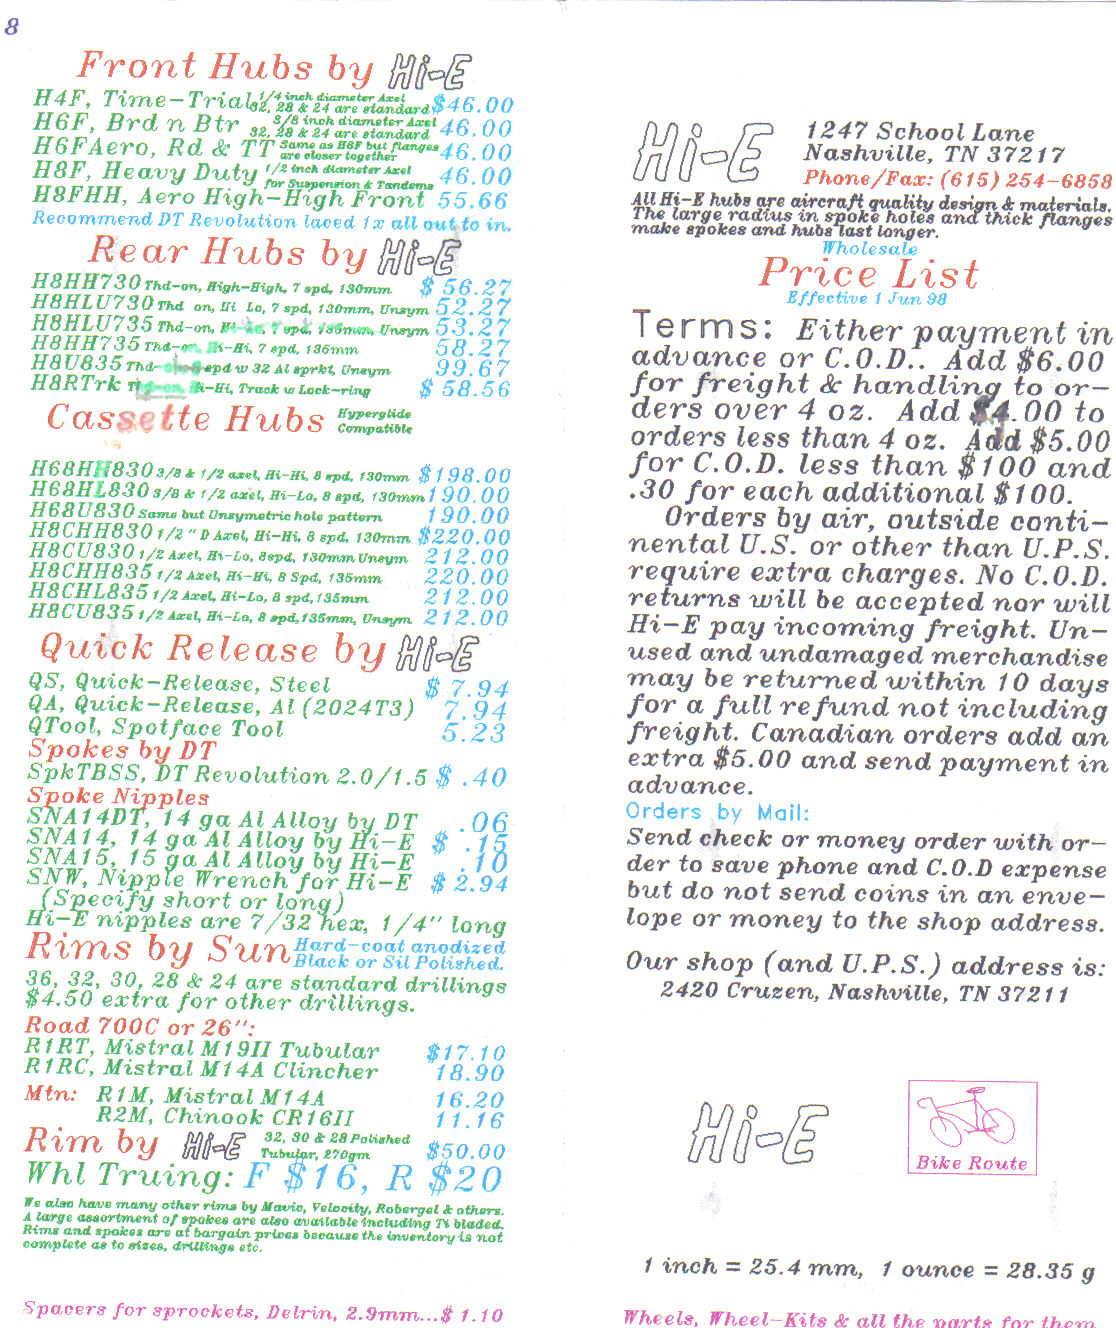 8
Front Hubs by Hi-E
H4F, Time-Trial 1/4 inch diameter Axel 32, 28 & 24 are standard $46.00
H6F, Brd n Btr 3/8 inch diameter Axel 32, 28 & 24 are standard 46.00
H6FAero, Rd & TT Same as H6F but flanges are closer together 46.00
H8F, Heavy Duty 1/2 inch diameter Axel for Suspension & Tandems 46.00
H8FHH, Aero High-High Front 55.66
Recommend DT Revolution laced 1x all out to in.
Rear Hubs by Hi-E
H8HH730 Thd-on, High-High, 7 spd, 130mm $ 56.27
H8HLU730 Thd on, Hi Lo, 7 spd, 130mm, Unsym 52.27
H8HLU735 Thd-on, Hi-Lo, 7 spd, 135mm, Unsym 53.27
H8HH735 Thd-on, Hi-Hi, 7 spd, 135mm 58.27
H8U835 Thd- spd w 32 Al sprkt, Unsym 99.67
H8RTrk Thd-on, Hi-Hi, Track w Lock-ring $ 58.56
Cassette Hubs Hyperglide Compatible
H68HH830 3/8 & 1/2 axel, Hi-Hi, 8 spd, 130mm $198.00
H68HL830 3/8 & 1/2 axel, Hi-Lo, 8 spd, 130mm 190.00
H68U830 Same but Unsymetric hole pattern 190.00
H8CHH830 1/2 " D Axel, Hi-Hi, 8 spd, 130mm $220.00
H8CU830 1/2 Axel, Hi-Lo, 8spd, 130mm Unsym 212.00
H8CHH835 1/2 Axel, Hi-Hi, 8 Spd, 135mm 220.00
H8CHL835 1/2 Axel, Hi-Lo, 8 spd, 135mm 212.00
H8CU835 1/2 Axel, Hi-Lo, 8 spd, 135mm, Unsym 212.00
Quick Release by Hi-E
QS, Quick-Release, Steel $ 7.94
QA, Quick-Release, Al (2024T3) 7.94
QTool, Spotface Tool 5.23
Spokes by DT
SpkTBSS, DT Revolution 2.0/1.5 $ .40
Spoke Nipples
SNA14DT, 14 ga Al Alloy by DT .06
SNA14, 14 ga Al Alloy by Hi-E $ .15
SNA15, 15 ga Al Alloy by Hi-E .10
SNW, Nipple Wrench for Hi-E $ 2.94
(Specify short or long)
Hi-E nipples are 7/32 hex, 1/4" long
Rims by Sun Hard-coat anodized Black or Sil Polished.
36, 32, 30, 28 & 24 are standard drillings
$4.50 extra for other drillings.
Road 700C or 26":
R1RT, Mistral M19II Tubular $17.10
R1RC, Mistral M14A Clincher 18.90
Mtn: R1M, Mistral M14A 16.20
R2M, Chinook CR16II 11.16
Rim by Hi-E 32, 30 & 28 Polished Tubular, 270gm $50.00
Whl Truing: F $16, R $20
We also have many other rims by Mavic, Velocity, Robergel & others.
A large assortment of spokes are also available including Ti bladed.
Rims and spokes are at bargain prices because the inventory is not
complete as to sizes, drillings etc.
Spacers for sprockets, Delrin, 2.9mm...$ 1.10
Hi-E
1247 School Lane
Nashville, TN 37217
Phone/Fax: (615) 254-6858
All Hi-E hubs are aircraft quality design & materials.
The large radius in spoke holes and thick flanges
make spokes and hubs last longer.
Wholesale
Price List
Effective 1 Jun 98
Terms: Either payment in
advance or C.O.D.. Add $6.00
for freight & handling to or-
ders over 4 oz. Add $4.00 to
orders less than 4 oz. Add $5.00
for C.O.D. less than $100 and
.30 for each additional $100.
Orders by air, outside conti-
nental U.S. or other than U.P.S.
require extra charges. No C.O.D.
returns will be accepted nor will
Hi-E pay incoming freight. Un-
used and undamaged merchandise
may be returned within 10 days
for a full refund not including
freight. Canadian orders add an
extra $5.00 and send payment in
advance.
Orders by Mail:
Send check or money order with or-
der to save phone and C.O.D expense
but do not send coins in an enve-
lope or money to the shop address.
Our shop (and U.P.S.) address is:
2420 Cruzen, Nashville, TN 37211
Hi-E
Bike Route
1 inch = 25.4 mm, 1 ounce = 28.35 g
Wheels, Wheel-Kits & all the parts for them